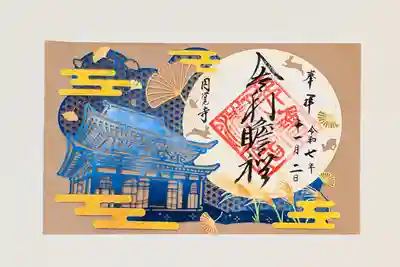 奉拝
令和七年
十一月二日
舎利瞻礼
円覚寺